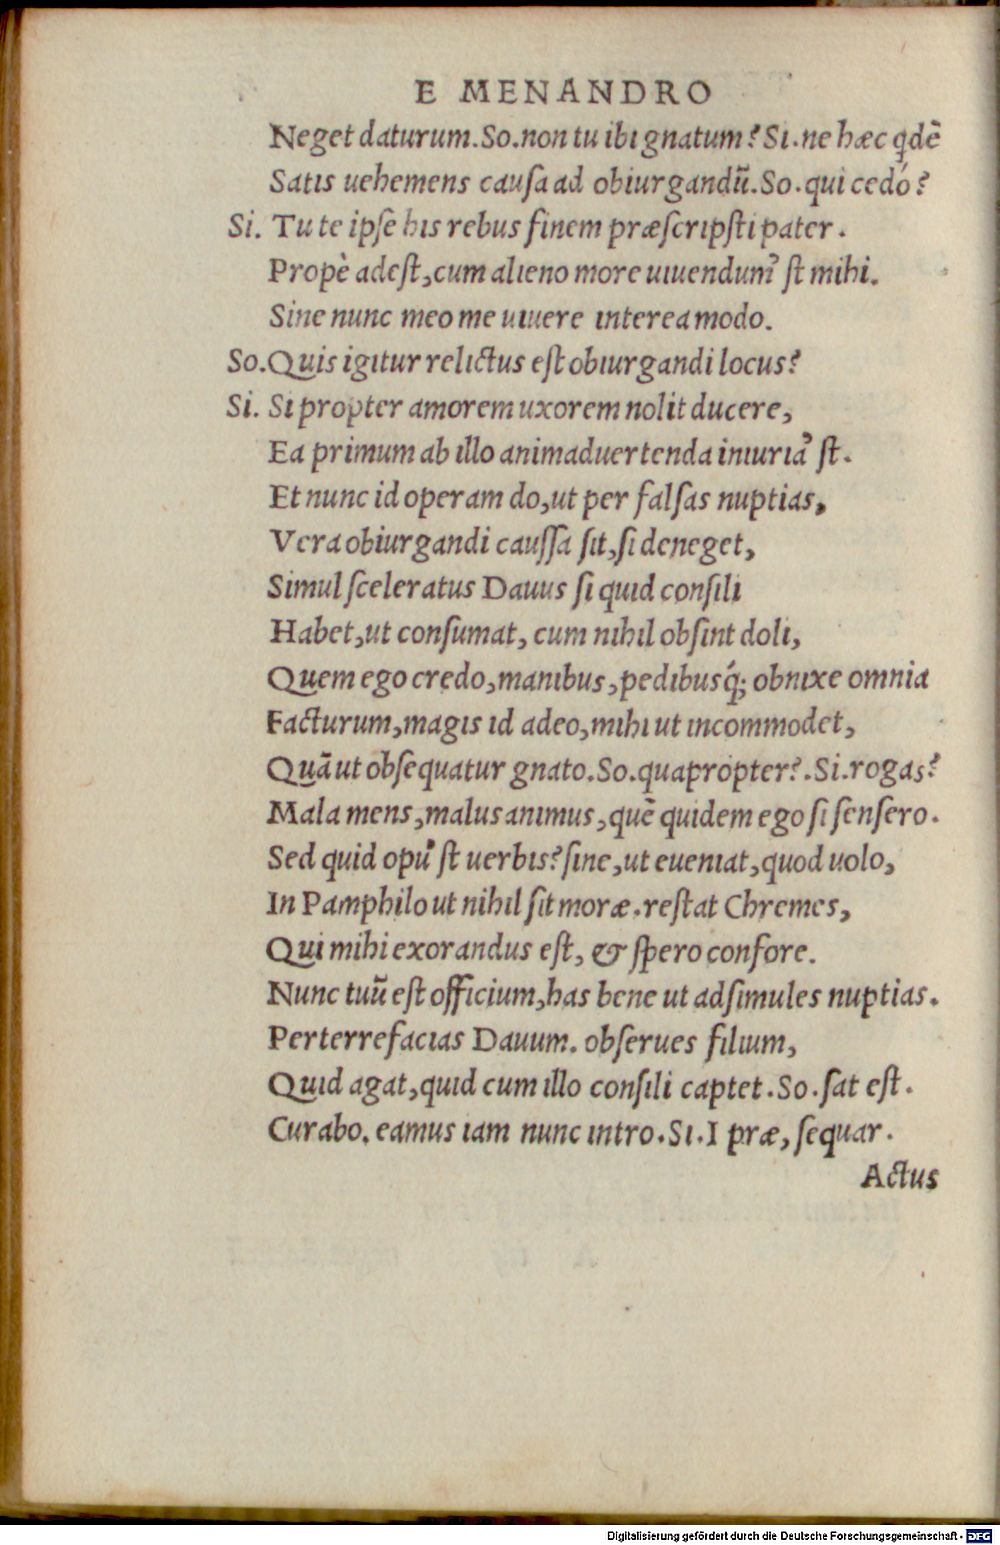 E MENANDRO
Neget daturum. So. non tu ibi gnatum? Si. ne hæc qdē
Satis uehemens causa ad obiurgandū. So. qui cedó?
Si. Tu te ipse his rebus finem præscripsti pater.
Propè adest, cum alieno more uiuendum' st mihi.
Sine nunc meo me uiuere interea modo.
So. Quis igitur relictus est obiurgandi locus?
Si. Si propter amorem uxorem nolit ducere,
Ea primum ab illo animaduertenda iniuria' st.
Et nunc id operam do, ut per falsas nuptias,
Vera obiurgandi caussa sit, si deneget,
Simul sceleratus Dauus si quid consili
Habet, ut consumat, cum nihil obsint doli,
Quem ego credo, manibus, pedibusq́; obnixe omnia
Facturum, magis id adeo, mihi ut incommodet,
Quā ut obsequatur gnato. So. quapropter?. Si. rogas?
Mala mens, malus animus, quē quidem ego si sensero.
Sed quid opu' st uerbis? sine, ut eueniat, quod uolo,
In Pamphilo ut nihil sit moræ. restat Chremes,
Qui mihi exorandus est, & spero confore.
Nunc tuū est officium, has bene ut adsimules nuptias.
Perterrefacias Dauum. obserues filium,
Quid agat, quid cum illo consili captet. So. sat est.
Curabo. eamus iam nunc intro. Si. I præ, sequar.
Actus
Digitalisierung gefördert durch die Deutsche Forschungsgemeinschaft - DFG